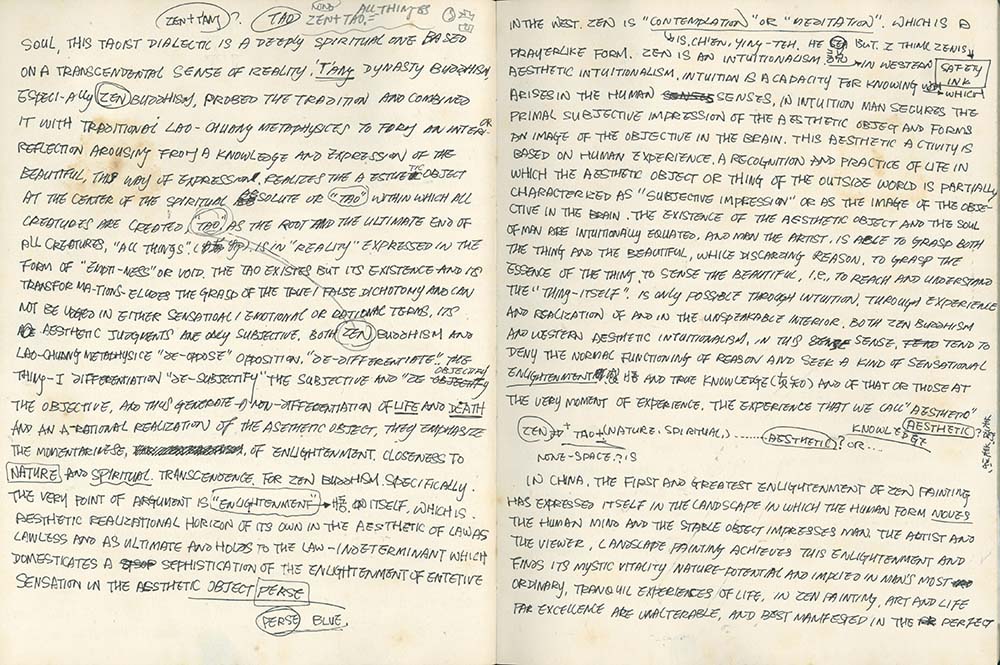 ZEN + TANG ? TAO AND ZEN + TAO = ALL THINGS
SOUL, THIS TAOIST DIALECTIC IS A DEEPLY SPIRITUAL ONE BASED
ON A TRANSCENDENTAL SENSE OF REALITY. T'ANG DYNASTY BUDDHISM,
ESPECI-ALLY ZEN BUDDHISM, PROBED THE TRADITION AND COMBINED
IT WITH TRADITIONAL LAO-CHUANG METAPHYSICES TO FORM AN INTERI-OR
REFLECTION AROUSING FROM A KNOWLEDGE AND EXPRESSION OF THE
BEAUTIFUL. THIS WAY OF EXPRESSION, REALIZES THE AESTHETIC OBJECT
AT THE CENTER OF THE SPIRITUAL ABSOLUTE OR "TAO" WITHIN WHICH ALL
CREATURES ARE CREATED. "TAO", AS THE ROOT AND THE ULTIMATE END OF
ALL CREATURES, "ALL THINGS". IS IN "REALITY" EXPRESSED IN THE
FORM OF "EMPTI-NESS" OR VOID. THE TAO EXISTES BUT ITS EXISTENCE AND ITS
TRANSFORMA-TIONS-ELUDES THE GRASP OF THE TRUE / FALSE DICHOTOMY AND CAN
NOT BE UDGED IN EITHER SENSATIONAL / EMOTIONAL OR RATIONAL TERMS. ITS
AESTHETIC JUDGMENTS ARE ONLY SUBJECTIVE. BOTH ZEN BUDDHISM AND
LAO-CHUANG METAPHYSICE "DE-OPPOSE" OPPOSITION, "DE-DIFFERENTIATE" THE
THING-I DIFFERENTIATION "DE-SUBJECTIFY" THE SUBJECTIVE AND "DE-OBJECTIFY
THE OBJECTIVE, AND THUS GENERATE A NON-DIFFERENTIATION OF LIFE AND DEATH
AND AN A-RATIONAL REALIZATION OF THE ASETHETIC OBJECT, THEY EMPHASIZE
THE MOMENTARINESE, OF ENLIGHTENMENT. CLOSENESS TO
NATURE AND SPIRITUAL TRANSCENDENCE. FOR ZEN BUDDHISM. SPECIFICALLY.
THE VERY POINT OF ARGUMENT IS "ENLIGHTENMENT" 悟. ITSELF. WHICH IS.
AESTHETIC REALIZATIONAL HORIZON OF ITS OWN IN THE AESTHETIC OF LAW AS
LAWLESS AND AS ULTIMATE AND HOLDS TO THE LAW-INDETERMINANT WHICH
DOMESTICATES A SEPHISTICATION OF THE ENLIGHTENMENT OF ENTETIVE
SENSATION IN THE AESTHETIC OBJECT PERSE
PERSE BLUE.
IN THE WEST. ZEN IS "CONTEMPLATION" OR "MEDITATION". WHICH IS A
IS, CH'EN, YING-TEH. HE BUT. I THINK ZEN IS
PRAYERLIKE FORM. ZEN IS AN INTUITIONALISM. IN WESTERN SAFETY INK
AESTHETIC INTUITIONALISM, INTUITION IS A CAPACITY FOR KNOWING WHICH
ARISES IN THE HUMAN SENSES, IN INTUITION MAN SECURES THE
PRIMAL SUBJECTIVE IMPRESSION OF THE AESTHETIC OBJECT AND FORMS
AN IMAGE OF THE OBJECTIVE IN THE BRAIN. THIS AESTHETIC ACTIVITY IS
BASED ON HUMAN EXPERIENCE, A RECOGNITION AND PRACTICE OF LIFE IN
WHICH THE AESTHETIC OBJECT OR THING OF THE OUTSIDE WORLD IS PARTIALLY
CHARACTERIZED AS "SUBJECTIVE IMPRESSION" OR AS THE IMAGE OF THE OBJE-
CTIVE IN THE BRAIN. THE EXISTENCE OF THE AESTHETIC OBJECT AND THE SOUL
OF MAN ARE INTUITIONALLY EQUATED. AND MAN THE ARTIST. IS ABLE TO GRASP BOTH
THE THING AND THE BEAUTIFUL, WHILE DISCARZING REASON. TO GRASP THE
ESSENCE OF THE THING, TO SENSE THE BEAUTIFUL. I.E., TO REACH AND UNDERSTAND
THE "THING-ITSELF". IS ONLY POSSIBLE THROUGH INTUITION, THROUGH EXPERIENCE
AND REALIZATION OF AND IN THE UNSPEAKABLE INTERIOR. BOTH ZEN BUDDHISM
AND WESTERN AESTHETIC INTUITIONALISM, IN THIS SENSE, TEND TO
DENY THE NORMAL FUNCTIONING OF REASON AND SEEK A KIND OF SENSATIONAL
ENLIGHTENMENT 悟 AND TRUE KNOWLEDGE (真知) AND OF THAT OR THOSE AT
THE VERY MOMENT OF EXPERIENCE. THE EXPERIENCE THAT WE CALL "AESTHETIC"
KNOWLEDGE AESTHETIC ?
ZEN + TAO + (NATURE. SPIRITUAL,) ........ AESTHETIC ? OR....
NONE-SPACE. ? IS
IN CHINA. THE FIRST AND GREATEST ENLIGHTENMENT OF ZEN PAINTING
HAS EXPRESSED ITSELF IN THE LANDSCAPE IN WHICH THE HUMAN FORM MOVES
THE HUMAN MIND AND THE STABLE OBJECT IMPRESSES MAN THE ARTIST AND
THE VIEWER, LANDSCAPE PAINTING ACHIEVES THIS ENLIGHTENMENT AND
FINDS ITS MYSTIC VITALITY NATURE-POTENTIAL AND IMPLIED IN MAN'S MOST
ORDINARY, TRANQUIL EXPERIENCES OF LIFE. IN ZEN PAINTING, ART AND LIFE
PAR EXCELLENCE ARE UNALTERABLE, AND BEST MANIFESTED IN THE PERFECT